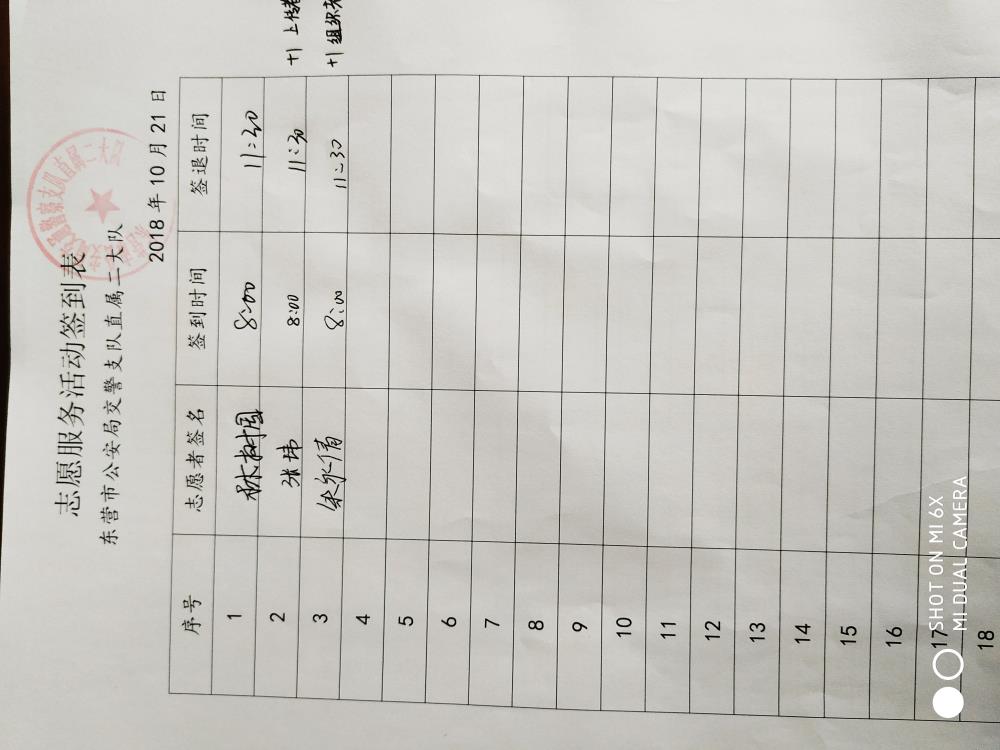 志愿服务活动签到表
东营市公安局交警支队直属二大队
2018 年 10 月 21 日
序号 志愿者签名 签到时间 签退时间
1 林树国 8:00 11:30
2 张坤 8:00 11:30 +1 上传者
3 8:00 11:30 +1 组织者
4
5
6
7
8
9
10
11
12
13
14
15
16
17
18
SHOT ON MI 6X
MI DUAL CAMERA